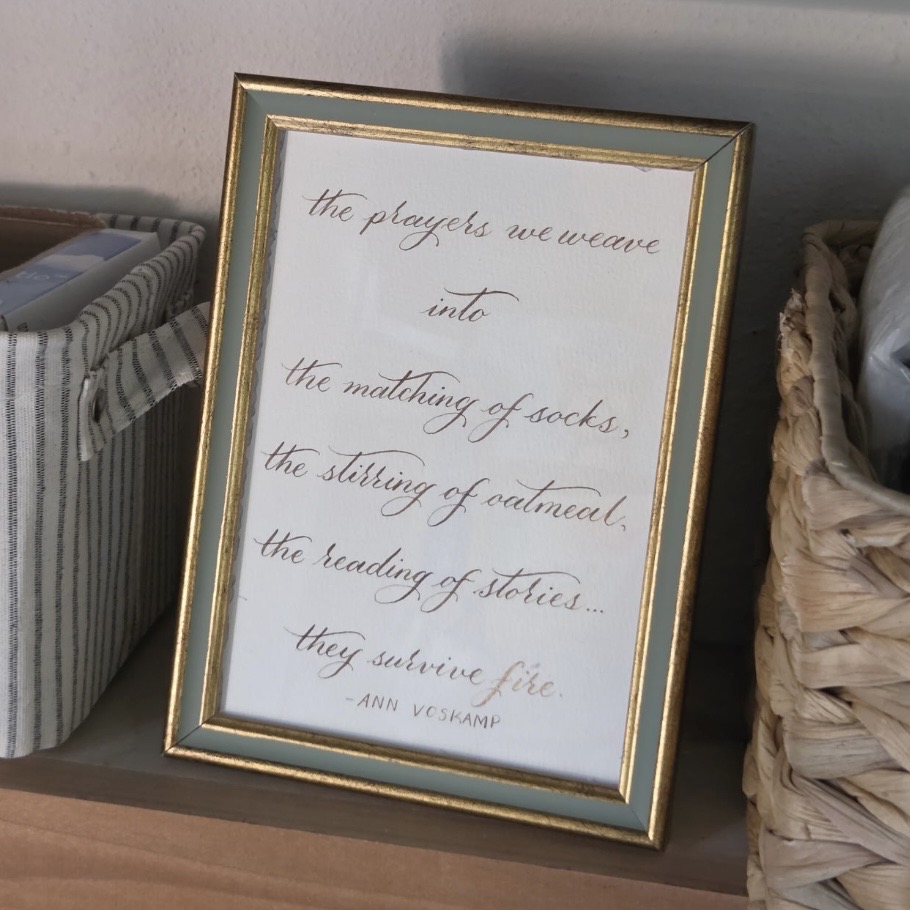 the prayers we weave
into
the matching of socks,
the stirring of oatmeal,
the reading of stories...
they survive fire.
-ANN VOSKAMP